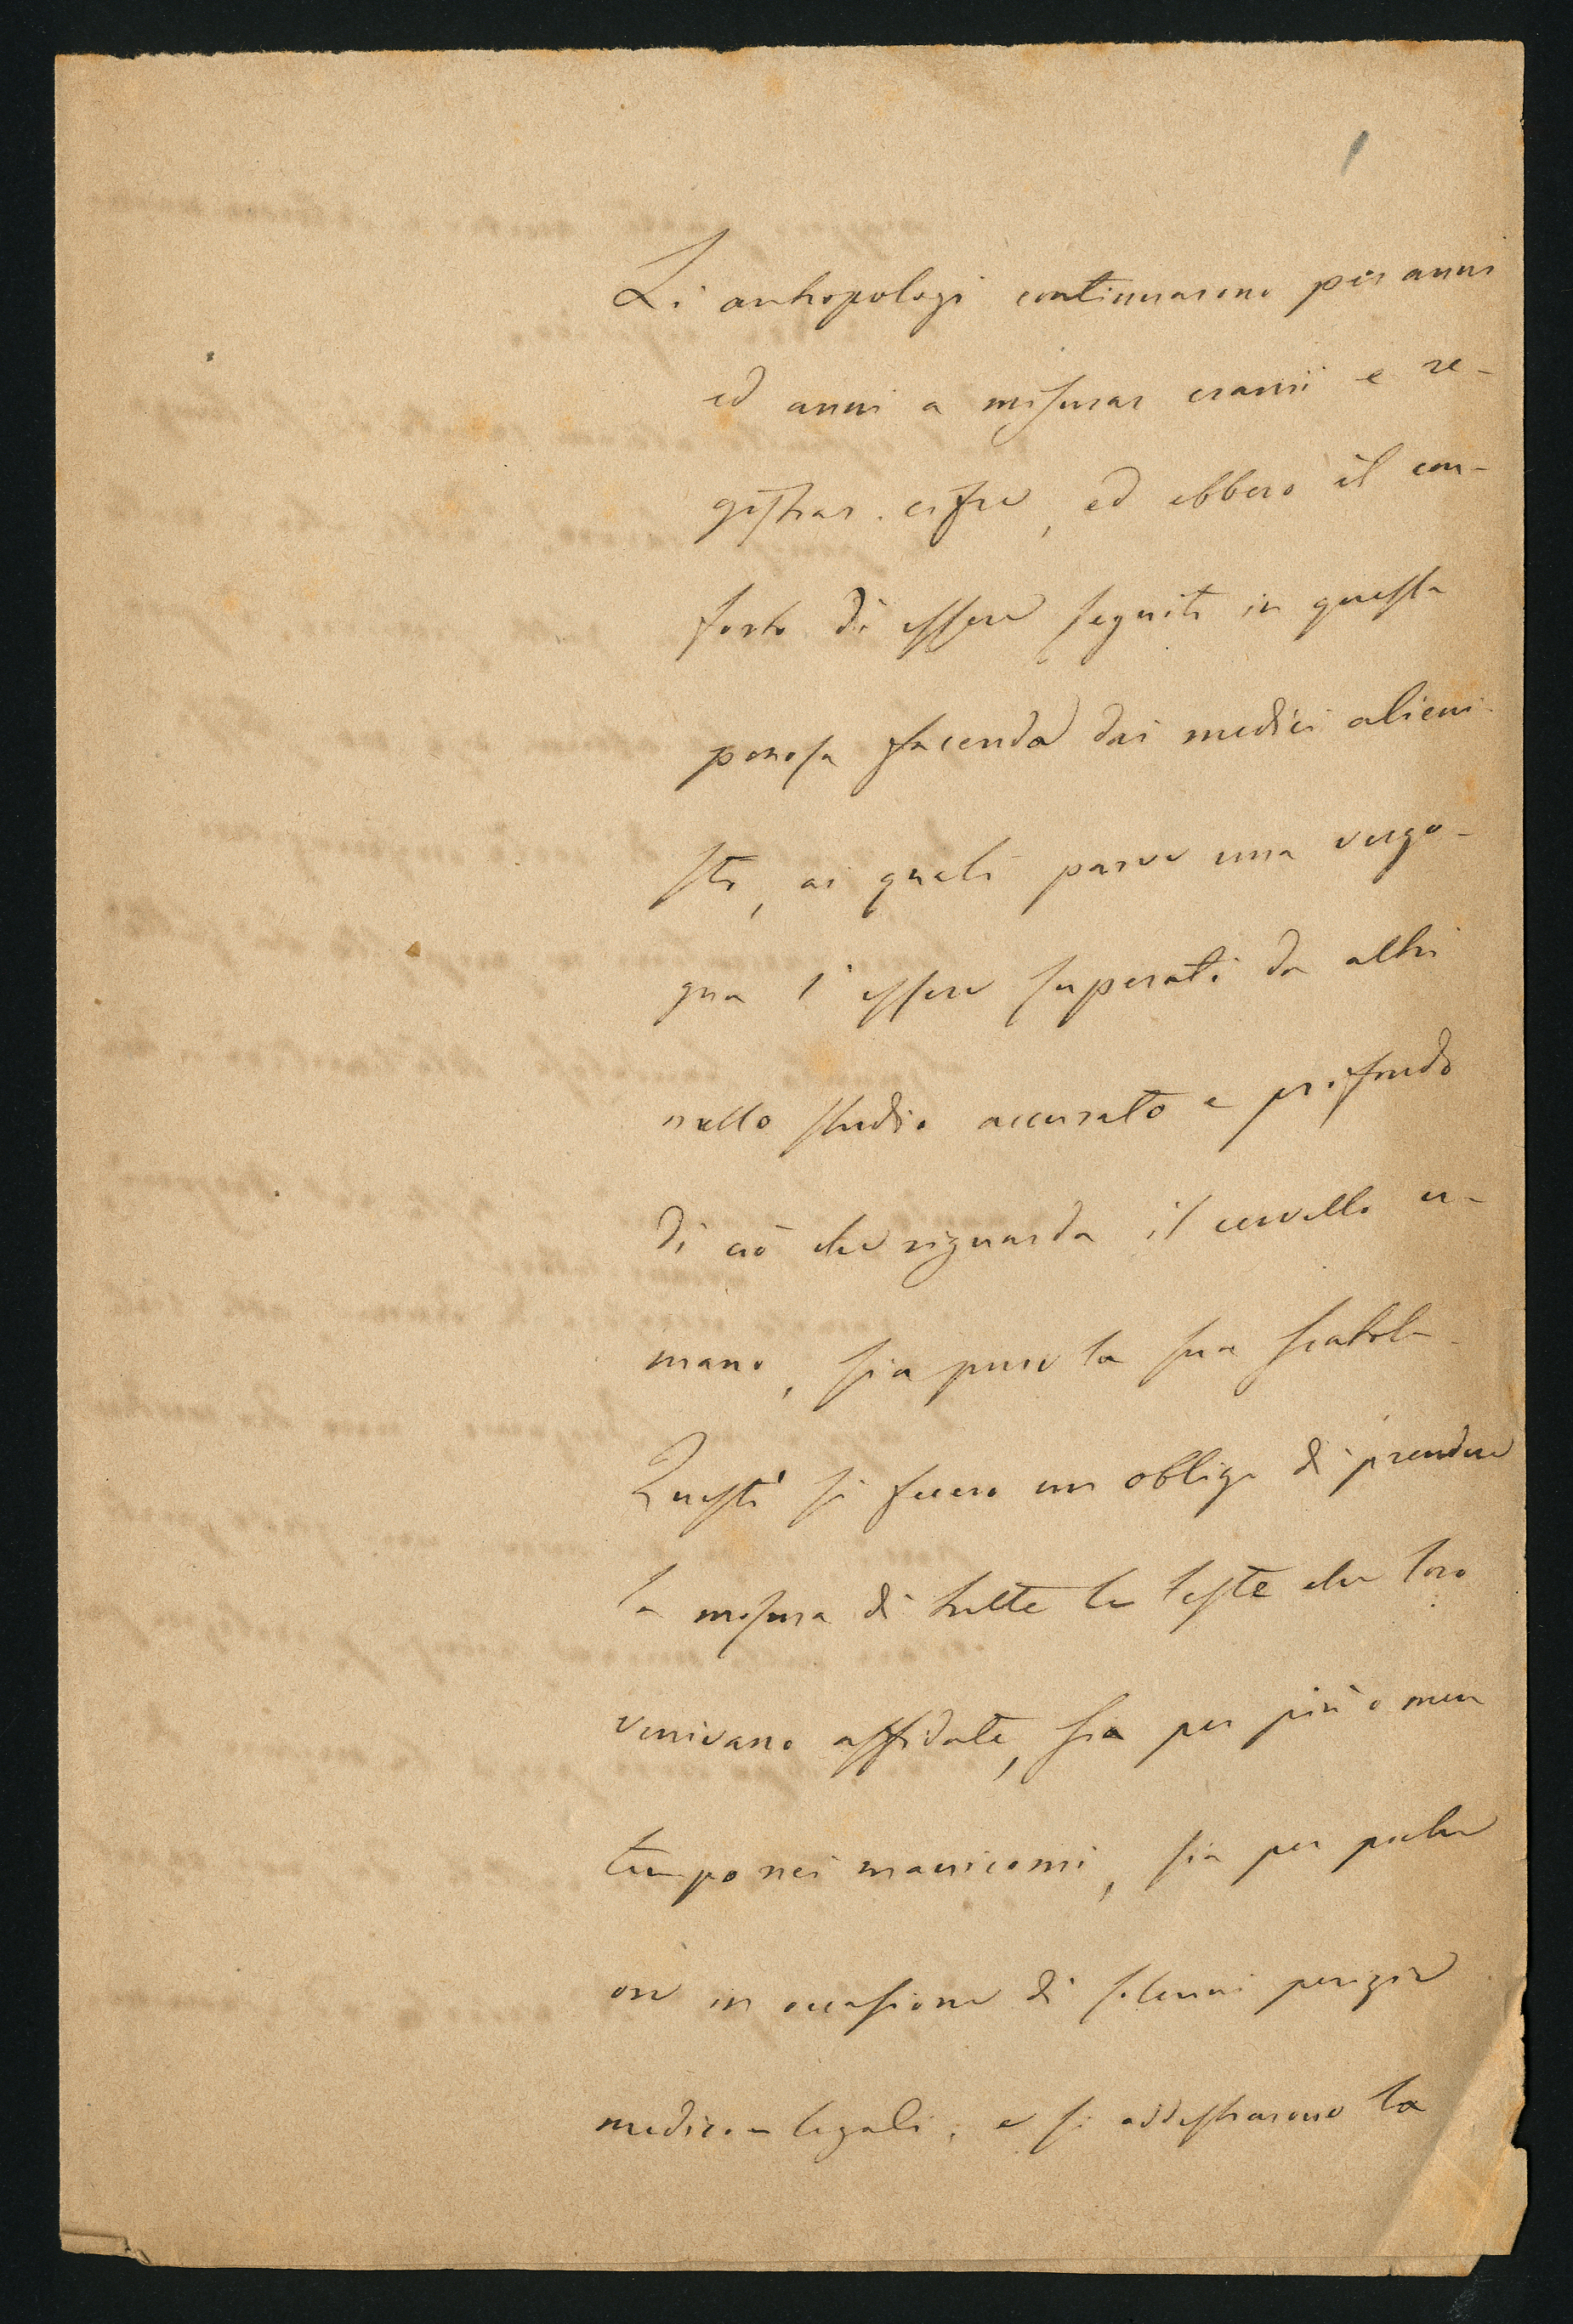 Li antropologi continuarono per anni
ed anni a misurar cranii e re-
gistrar cifre, ed ebbero il con-
forto di essere seguiti in questa
penosa facenda dai medici alieni-
sti, ai quali parve una vergo-
gna l'essere superati da altri
nello studio accurato e profondo
di ciò che riguarda il cervello u-
mano, sia pure la sua scatola.
Questi si fecero un obbligo di prendere
la misura di tutte le teste che loro
venivano affidate, sia per più o men
tempo nei manicomi, sia per poche
ore in occasione di solenni perizie
medico-legali, e si addestrarono la